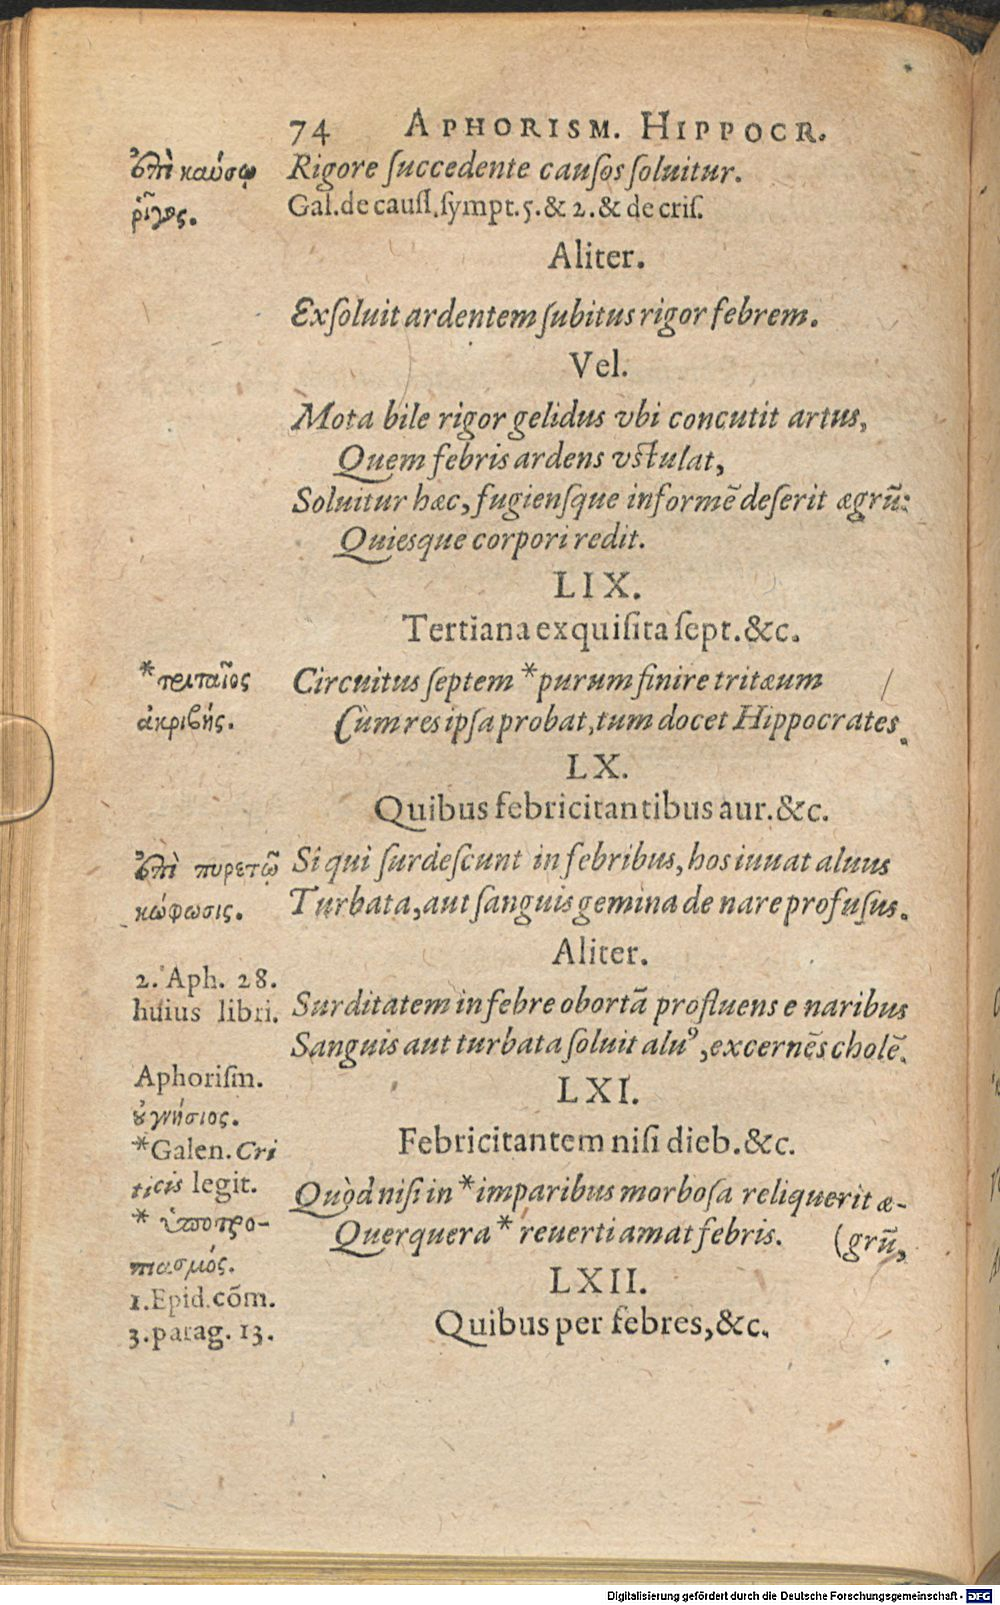 74 APHORISM. HIPPOCR.
ἐπὶ καύσῳ
ῥῖγος.
Rigore ſuccedente cauſos ſoluitur.
Gal. de cauſſ. ſympt. 5. & 2. & de criſ.
Aliter.
Exſoluit ardentem ſubitus rigor febrem.
Vel.
Mota bile rigor gelidus vbi concutit artus,
Quem febris ardens vſtulat,
Soluitur hæc, fugienſque informē deſerit ægrū:
Quieſque corpori redit.
LIX.
Tertiana exquiſita ſept. &c.
* τριταῖος
ἀκριβής.
Circuitus ſeptem * purum finire tritæum
Cùm res ipſa probat, tum docet Hippocrates.
LX.
Quibus febricitantibus aur. &c.
ἐπὶ πυρετῷ
κώφωσις.
Si qui ſurdeſcunt in febribus, hos iuuat aluus
Turbata, aut ſanguis gemina de nare profuſus.
Aliter.
2. Aph. 28.
huius libri.
Surditatem in febre obortā profluens e naribus
Sanguis aut turbata ſoluit aluꝰ, excernēs cholē.
LXI.
Febricitantem niſi dieb. &c.
Aphoriſm.
ȣ γνήσιος.
*Galen. Cri
ticis legit.
* ὑποτρο-
πιασμός.
1. Epid. cōm.
3. parag. 13.
Quòd niſi in * imparibus morboſa reliquerit æ-
Querquera * reuerti amat febris. (grū,
LXII.
Quibus per febres, &c.
Digitalisierung gefördert durch die Deutsche Forschungsgemeinschaft - DFG